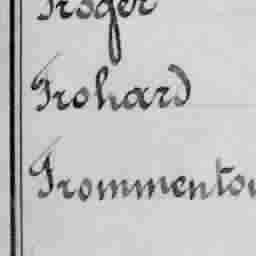 Froger
Frohard
Frommentou